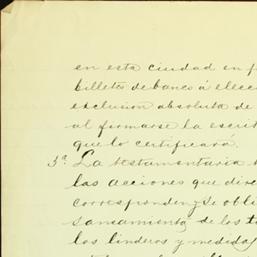 en esta ciudad en
billetes de banco á elec
exclusion absoluta de
al firmarse la escrit
que lo certificará.
3ª La testamentaria
las acciones que dire
corresponden, y se obli
saneamiento de los ti
los linderos y medidas